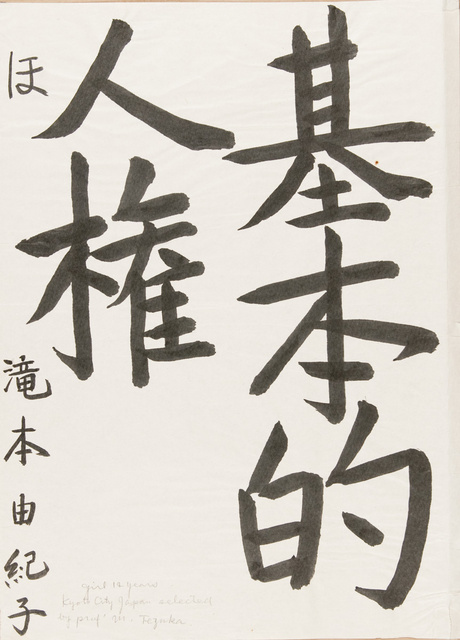 基本的
人権
ほ 滝本由紀子
girl 12 years
Kyoto City Japan selected
by prof. M. Tezuka